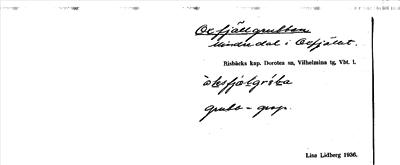 Oxfjällgrubban
mindre dal i Oxfjället.
Risbäcks kap. Dorotea sn, Vilhelmina tg, Vbt. l.
grubb = grop.
Lisa Lidberg 1936.